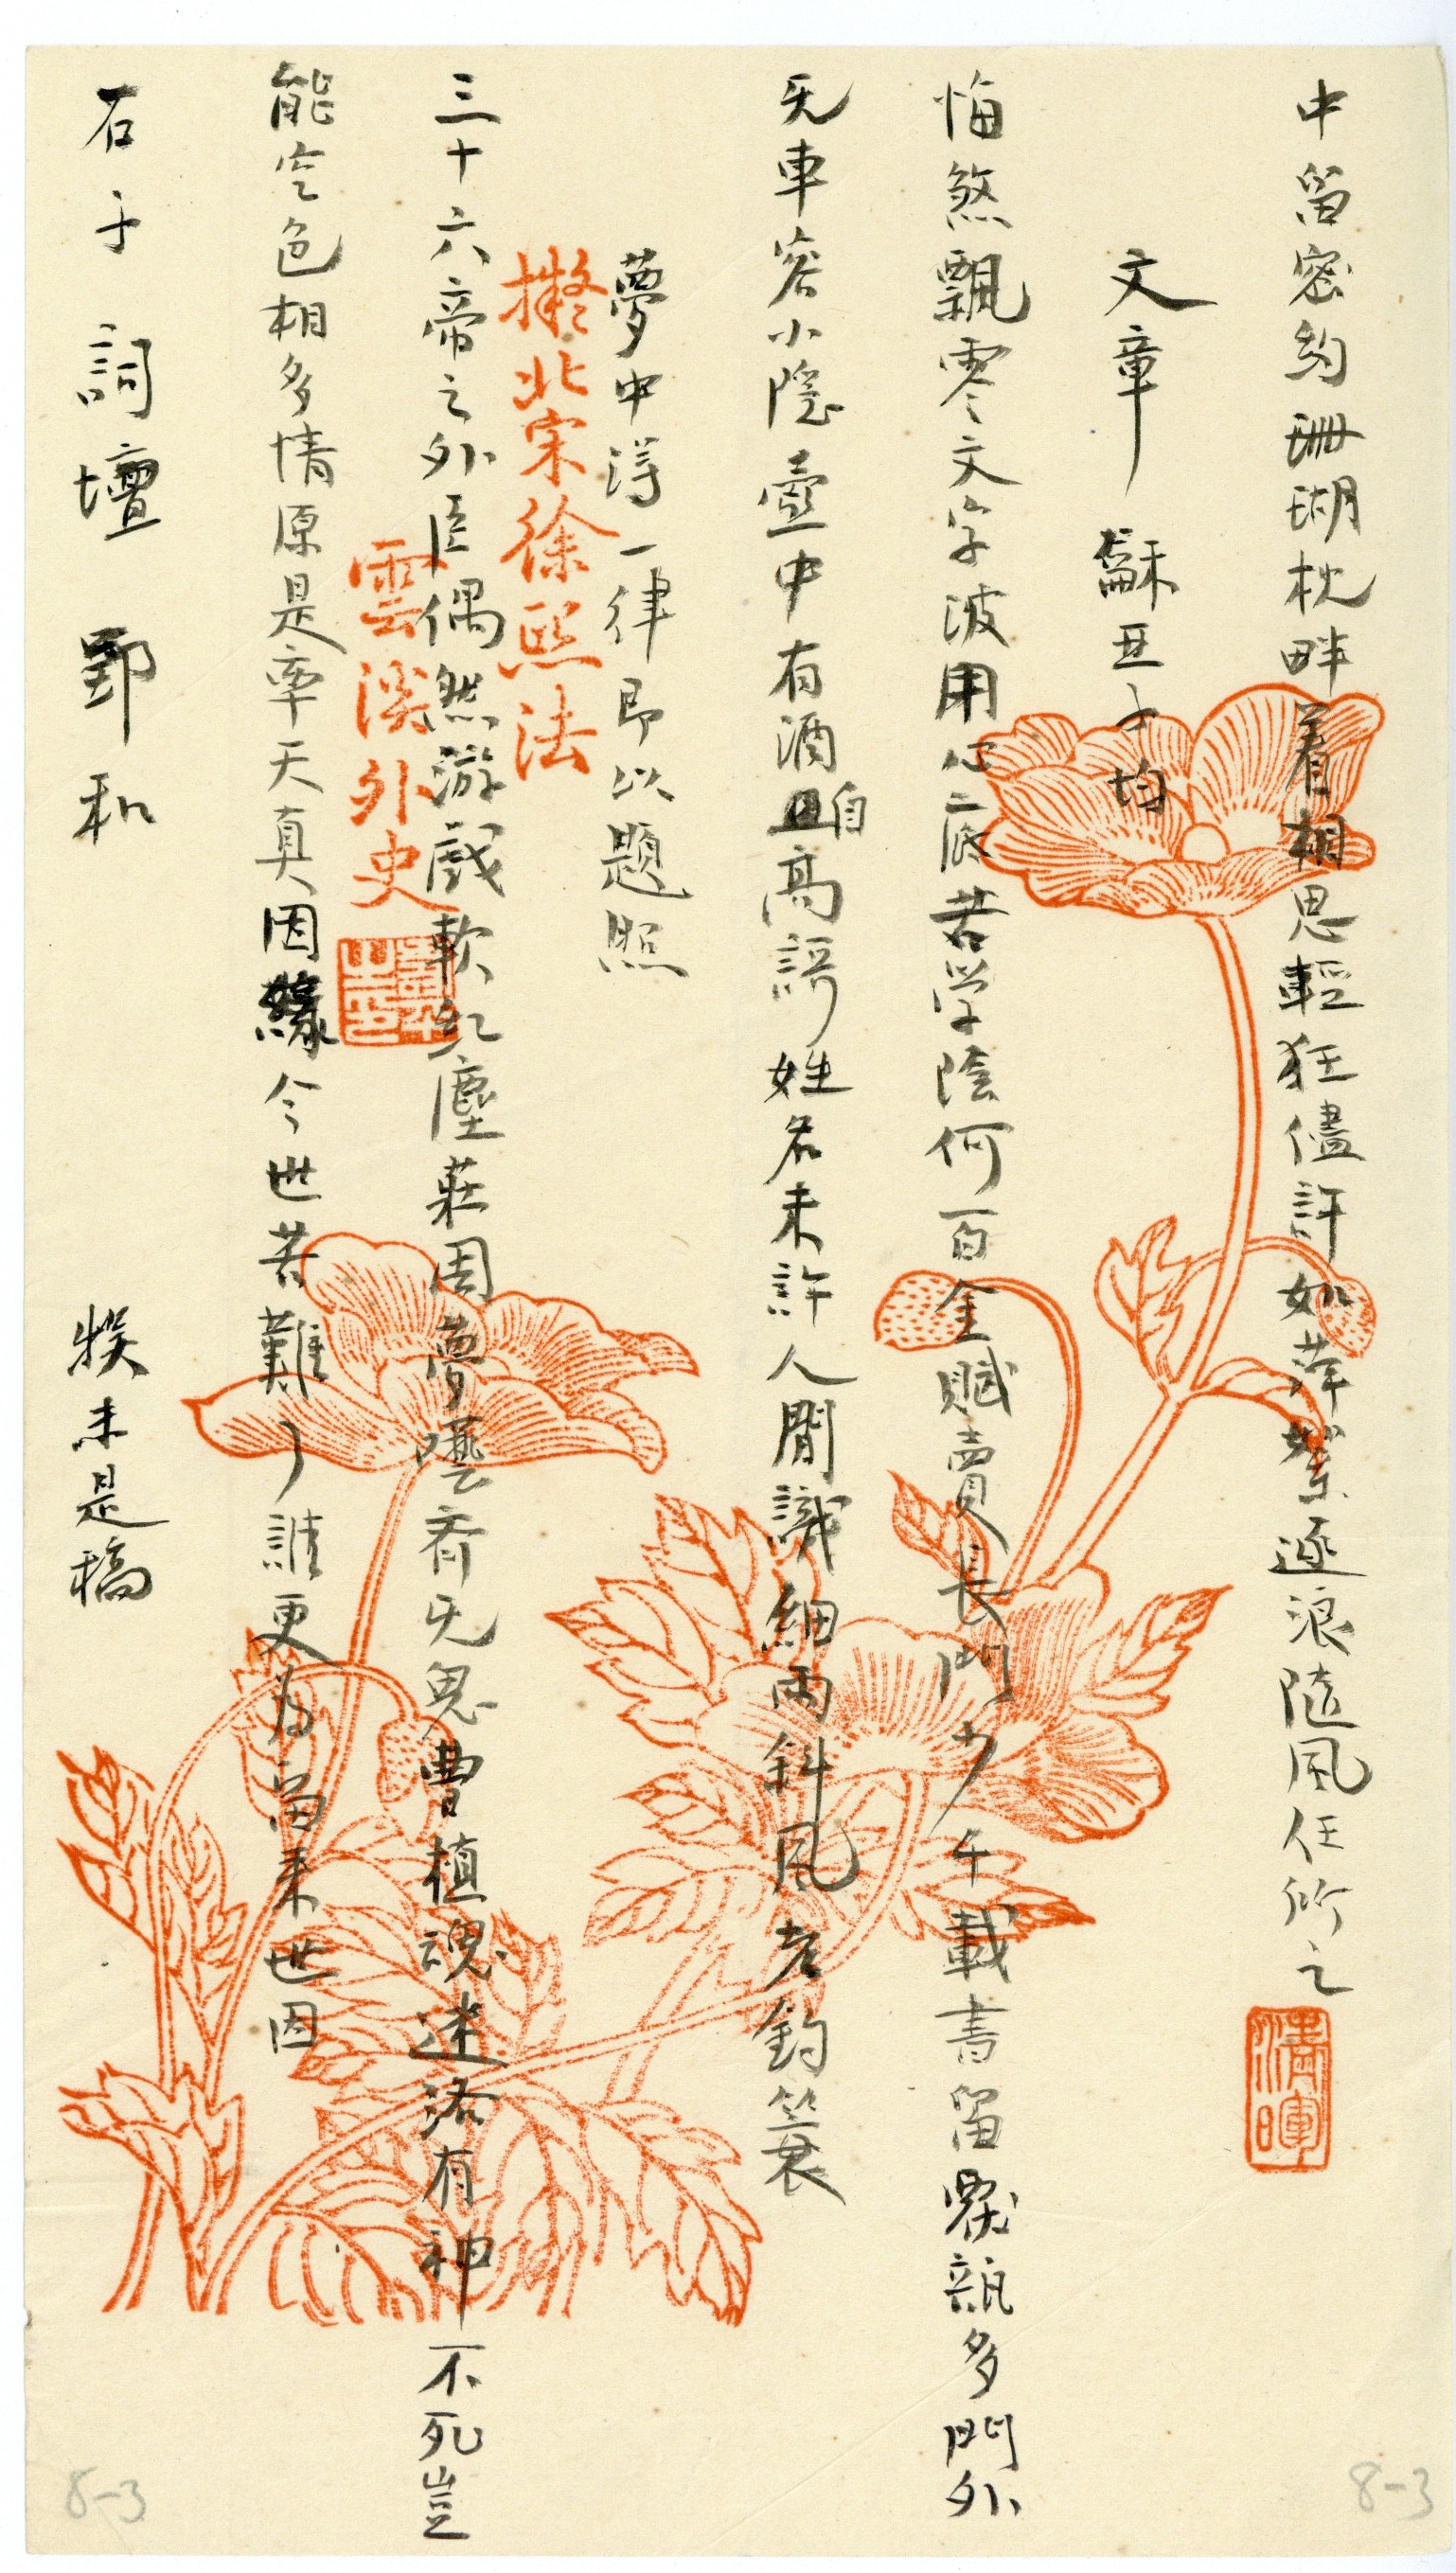 中留密約珊瑚枕畔着相思輕狂儘許如萍絮逐浪隨風任所之
清暉
文章 龢亞子均
悔煞飄零文字波用心底苦学陰何百金賦賣長門少千載書留覆瓿多門外
无車容小隱壺中有酒自高謌姓名未許人間識細雨斜風老釣簑
夢中得一律即以題照
擬北宋徐熙法
三十六帝之外臣偶然游戲軟紅塵莊周夢囈齊无鬼曹植魂迷洛有神不死豈
雲溪外史
能空色相多情原是率天真因緣今世若難了誰更為留来世因
石子詞壇 郢和 揆未是稿
8-3
8-3